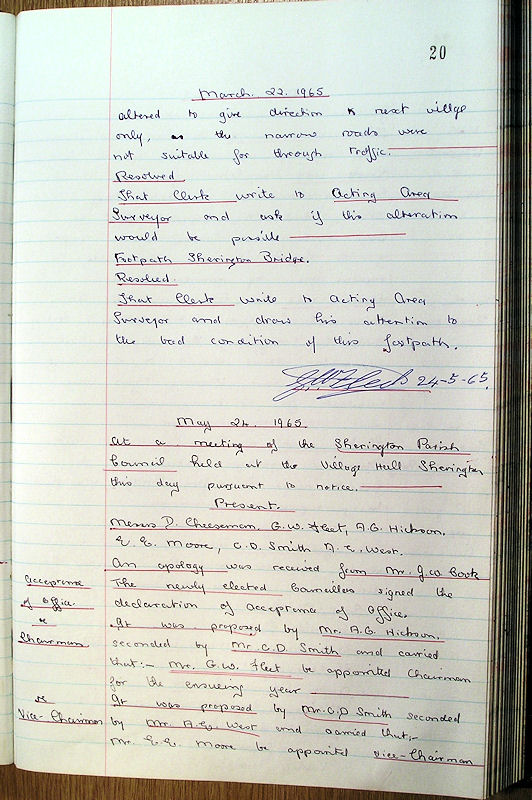 20
March. 22. 1965
altered to give direction to next village
only, as the narrow roads were
not suitable for through traffic.
Resolved
That Clerk write to Acting Area
Surveyor and ask if this alteration
would be possible
Footpath Sherington Bridge.
Resolved.
That Clerk write to Acting Area
Surveyor and draw his attention to
the bad condition of this footpath.
24-5-65.
May 24. 1965
At a meeting of the Sherington Parish
Council held at the Village Hall Sherington
this day pursuant to notice.
Present.
Messrs D. Cheeseman, G.W. Fleet, A.G. Hickson.
E. E. Moore, C.D. Smith A. E. West.
An apology was received from Mr. G.W Cook
The newly elected Councillors signed the
declaration of acceptance of office.
It was proposed by Mr. A.G. Hickson.
seconded by Mr. C.D. Smith and carried
that:- Mr. G.W. Fleet be appointed Chairman
for the ensuing year
It was proposed by Mr. C.D Smith seconded
by Mr. A.E West and carried that:-
Mr. E.E. Moore be appointed Vice-Chairman
Acceptance
of Office
re
Chairman
re
Vice-Chairman